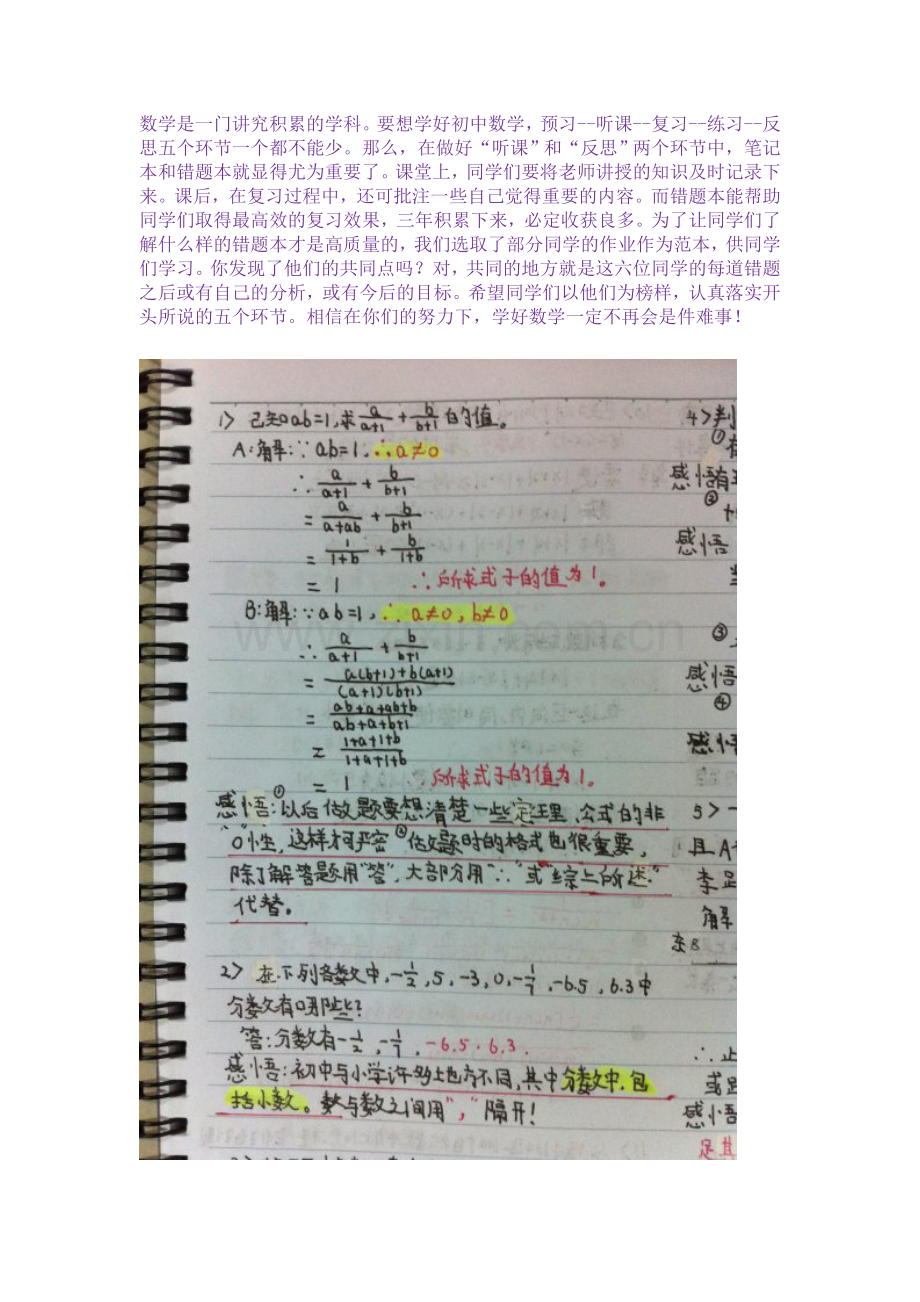 数学是一门讲究积累的学科。要想学好初中数学，预习--听课--复习--练习--反
思五个环节一个都不能少。那么，在做好“听课”和“反思”两个环节中，笔记
本和错题本就显得尤为重要了。课堂上，同学们要将老师讲授的知识及时记录下
来。课后，在复习过程中，还可批注一些自己觉得重要的内容。而错题本能帮助
同学们取得最高效的复习效果，三年积累下来，必定收获良多。为了让同学们了
解什么样的错题本才是高质量的，我们选取了部分同学的作业作为范本，供同学
们学习。你发现了他们的共同点吗？对，共同的地方就是这六位同学的每道错题
之后或有自己的分析，或有今后的目标。希望同学们以他们为榜样，认真落实开
头所说的五个环节。相信在你们的努力下，学好数学一定不再会是件难事！
1> 已知ab=1,求a/(a+1)+b/(b+1)的值。
A:解:∵ab=1.∴a≠0
∴a/(a+1)+b/(b+1)
=a/(a+ab)+b/(b+1)
=1/(1+b)+b/(1+b)
=1 ∴所求式子的值为1。
B:解:∵ab=1,∴a≠0,b≠0
∴a/(a+1)+b/(b+1)
=(a(b+1)+b(a+1))/((a+1)(b+1))
=(ab+a+ab+b)/(ab+a+b+1)
=(1+a+1+b)/(1+a+1+b)
=1 ∴所求式子的值为1。
感悟:①以后做题要想清楚一些定理、公式的非
“0”性,这样才严密②做题时的格式也很重要,
除了解答题用“答”,大部分用“∴”或“综上所述”
代替。
2> 在下列各数中,-1/2,5,-3,0,-1/7,-6.5,6.3中
分数有哪些?
答:分数有-1/2,-1/7,-6.5,6.3.
感悟:初中与小学许多地方不同,其中分数中,包
括小数。数与数之间用“,”隔开!
4>判
①
感悟
②
感悟
③
感悟
④
感悟
5> 一
且A
李
解
∴
或
感悟